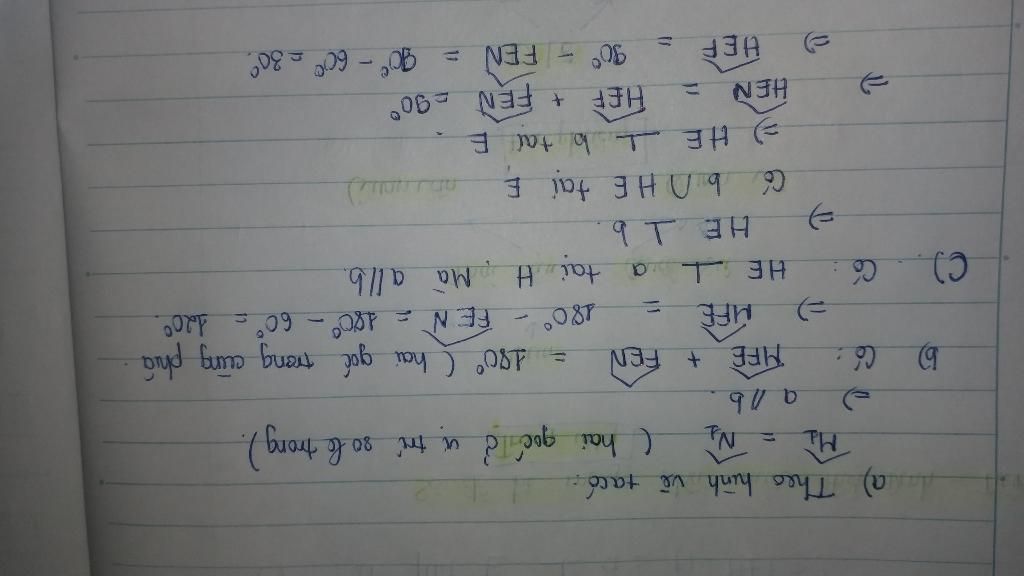 a) Theo hình vẽ ta có:
M₁ = N₁ ( hai góc ở vị trí so le trong.)
=> a // b.
b) Có: MFE + FEN = 180° ( hai góc trong cùng phía.
=> MFE = 180° - FEN = 180° - 60° = 120°.
c) Có: HE ⊥ a tại H. Mà a // b.
=> HE ⊥ b.
Có b ∩ HE tại E
=> HE ⊥ b tại E.
=> HEN = HEF + FEN = 90°
=> HEF = 90° - FEN = 90° - 60° = 30°.